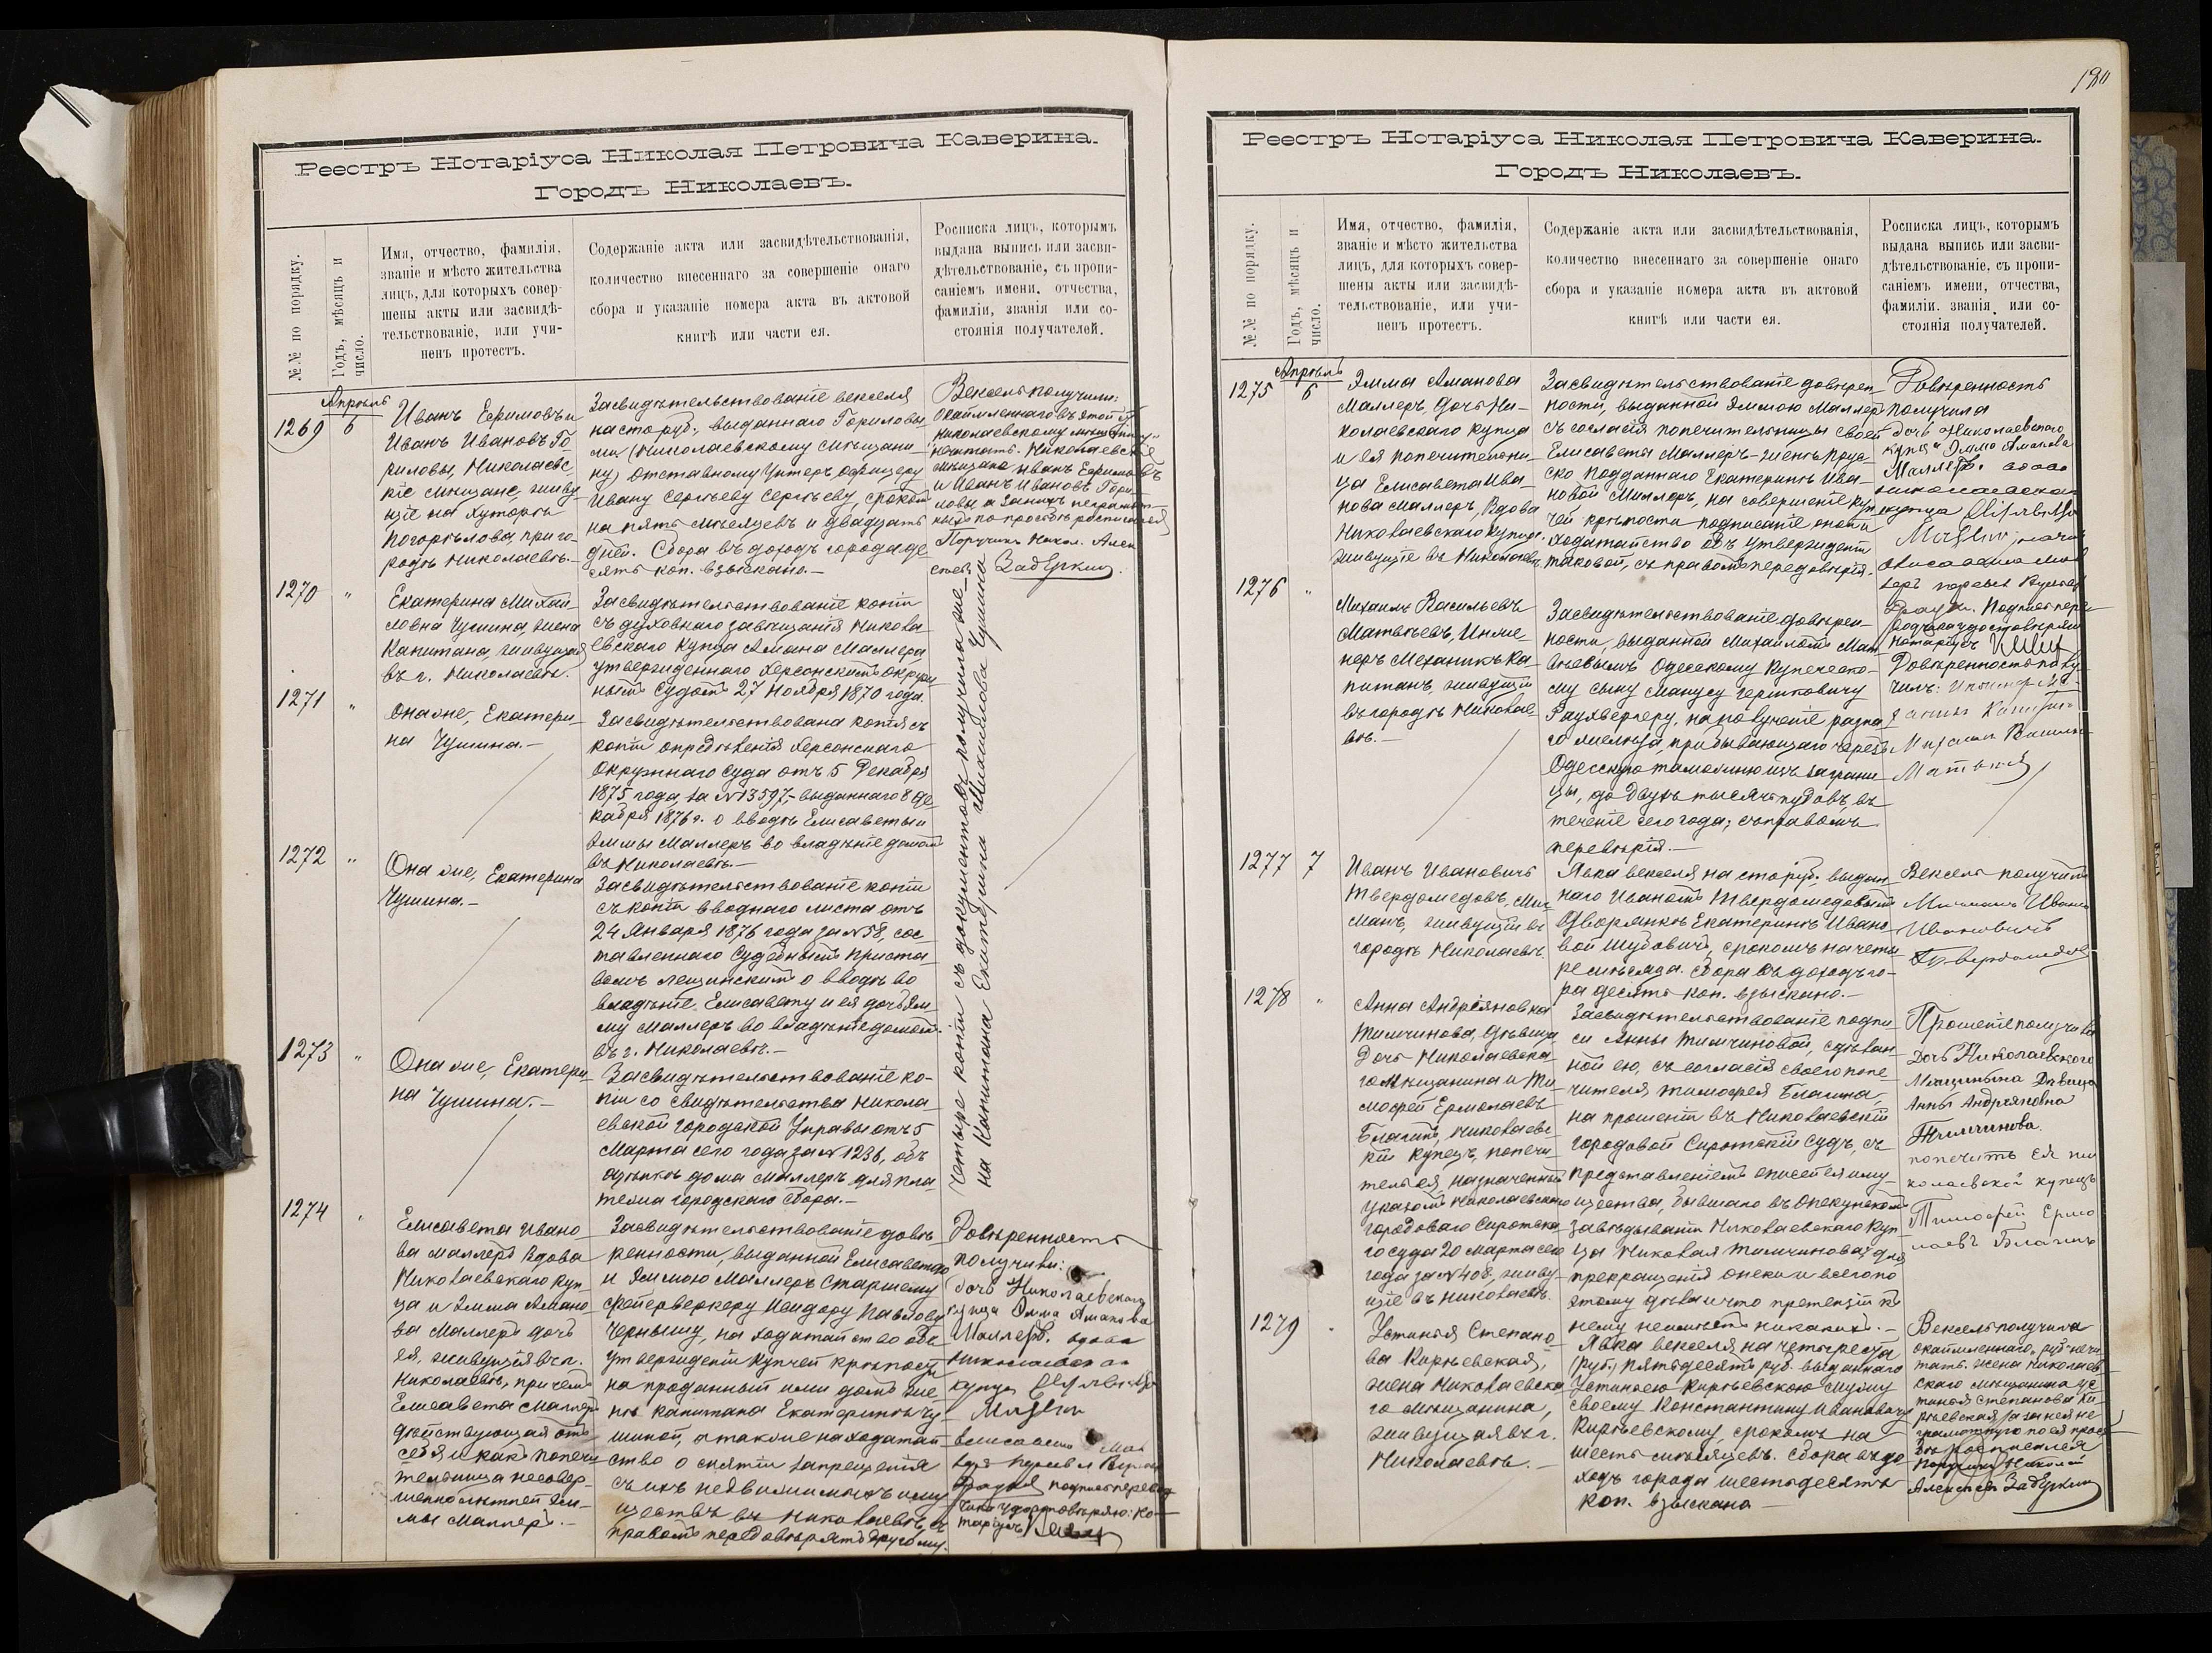 Реестръ Нотаріуса Николая Петровича Каверина.
Городъ Николаевъ.
№№ по порядку.
Годъ, мѣсяцъ и
число.
Имя, отчество, фамилія,
званіе и мѣсто жительства
лицъ, для которыхъ совер-
шены акты или засвидѣ-
тельствованіе, или учи-
ненъ протестъ.
Содержаніе акта или засвидѣтельствованія,
количество внесеннаго за совершеніе онаго
сбора и указаніе номера акта въ актовой
книгѣ или части ея.
Росписка лицъ, которымъ
выдана выпись или засви-
дѣтельствованіе, съ пропи-
саніемъ имени, отчества,
фамиліи, званія или со-
стоянія получателей.
Апрѣль
1269
6
Иванъ Ефимовъ и
Иванъ Ивановъ Го-
риловы, Николаевс-
кіе мѣщане, живу-
щіе на хуторѣ
Погорѣлова при го-
родѣ Николаевѣ.
Засвидѣтельствованіе векселя
на сто руб., выданнаго Гориловы-
ми (Николаевскому мѣщани-
ну) отставному Унтеръ Офицеру
Ивану Сергѣеву Сергѣеву, срокомъ
на пять мѣсяцевъ и двадцать
дней. Сбора въ доходъ города де-
сять коп. взыскано.
Вексель получили:
Николаевскому мѣщанину
нечитать. Николаевскіе
мѣщане Иванъ Ефимовъ
и Иванъ Ивановъ Гори-
ловы а за нихъ неграмот-
ныхъ по просьбѣ росписался
Поручикъ Никол. Алек
1270
"
Екатерина Михай-
ловна Чушина, жена
Капитана, живущая
въ г. Николаевѣ.
Засвидѣтельствованіе копіи
съ духовнаго завѣщанія Никола-
евскаго купца Амана Маллера
утвержденнаго Херсонскимъ Окруж-
нымъ Судомъ 27 Ноября 1870 года.
1271
"
Она же, Екатери-
на Чушина.
Засвидѣтельствована копія съ
копіи опредѣленія Херсонскаго
Окружнаго Суда отъ 5 Декабря
1875 года за №13597, выданнаго 8 Де-
кабря 1876 г. о вводѣ Елисаветы и
Эммы Маллеръ во владѣніе домомъ
въ Николаевѣ.
1272
"
Она же, Екатерина
Чушина.
Засвидѣтельствованіе копіи
съ копіи вводнаго листа отъ
24 Января 1876 года за №58, сос-
тавленнаго Судебнымъ Приста-
вомъ Лещинскимъ о вводѣ во
владѣніе Елисавету и ея дочь Эм-
му Маллеръ во владѣніе домомъ
въ г. Николаевѣ.
1273
"
Она же, Екатери-
на Чушина.
Засвидѣтельствованіе ко-
піи со свидѣтельства Никола-
евской городской Управы отъ 5
Марта сего года за №1236, объ
оцѣнкѣ дома Маллеръ для пла-
тежа городскаго сбора.
Четыре копіи съ документовъ получила же-
на Капитана Екатерина Михайлова Чушина
1274
"
Елисавета Ивано-
ва Маллеръ Вдова
Николаевскаго куп-
ца и Эмма Амано-
ва Маллеръ дочь
ея, живущія въ г.
Николаевѣ, причемъ
Елисавета Маллеръ
дѣйствующая отъ
себя и какъ попечи-
тельница несовер-
шеннолѣтней Эм-
мы Маллеръ.
Засвидѣтельствованіе довѣ-
ренности, выданной Елисаветою
и Эммою Маллеръ Старшему
фейерверкеру Исидору Павлову
Чернышу, на ходатайство объ
утвержденіи купчей крѣпости
на проданный ими домъ же-
нѣ капитана Екатеринѣ Чу-
шиной, а также на ходатай-
ство о снятіи запрещенія
съ ихъ недвижимыхъ иму-
ществъ въ Николаевѣ, съ
правомъ передовѣрять другому.
Довѣренность
получили:
дочь Николаевскаго
купца Эмма Аманова
Маллеръ. вдова
николаевскаго
купца
подпись перевод-
чика удостовѣряю: Но-
таріусъ
180
Реестръ Нотаріуса Николая Петровича Каверина.
Городъ Николаевъ.
№№ по порядку.
Годъ, мѣсяцъ и
число.
Имя, отчество, фамилія,
званіе и мѣсто жительства
лицъ, для которыхъ совер-
шены акты или засвидѣ-
тельствованіе, или учи-
ненъ протестъ.
Содержаніе акта или засвидѣтельствованія,
количество внесеннаго за совершеніе онаго
сбора и указаніе номера акта въ актовой
книгѣ или части ея.
Росписка лицъ, которымъ
выдана выпись или засви-
дѣтельствованіе, съ пропи-
саніемъ имени, отчества,
фамиліи, званія или со-
стоянія получателей.
Апрѣль
1275
6
Эмма Аманова
Маллеръ, дочь Ни-
колаевскаго купца
и ея попечительни-
ца Елисавета Ива-
нова Маллеръ, Вдова
Николаевскаго купца,
живущіе въ Николаевѣ.
Засвидѣтельствованіе довѣрен-
ности, выданной Эммою Маллеръ
съ согласія попечительницы своей
Елисаветы Маллеръ женѣ Прус-
ско подданнаго Екатеринѣ Ива-
новой Миллеръ, на совершеніе куп-
чей крѣпости подписаніе оной и
ходатайство объ утвержденіи
таковой, съ правомъ передовѣрія.
Довѣренность
получила
дочь Николаевскаго
купца Эмма Аманова
Маллеръ. вдова
николаевскаго
купца
Подпись пере-
водчика удостовѣряю
Нотаріусъ
1276
"
Михаилъ Васильевъ
Матвѣевъ, Инже-
неръ Механикъ Ка-
питанъ, живущій
въ городѣ Николае-
вѣ.
Засвидѣтельствованіе довѣрен-
ности, выданной Михаиломъ Мат-
вѣевымъ Одесскому купеческо-
му сыну Манусу Гершковичу
Раухвергеру, на полученіе разна-
го желѣза, прибывающаго чрезъ
Одесскую таможню изъ заграни-
цы, до двухъ тысячъ пудовъ, въ
теченіе сего года; съ правомъ
перевѣрія.
Довѣренность полу-
чилъ: Инженеръ Ме-
ханикъ Капитанъ
Михаилъ Василь
Матвѣевъ
1277
7
Иванъ Ивановичъ
Твердомедовъ, Мич-
манъ, живущій въ
городѣ Николаевѣ.
Явка векселя на сто руб., выдан-
наго Иваномъ Твердомедовымъ
Дворянкѣ Екатеринѣ Ивано-
вой Шубовичъ, срокомъ на четы-
ре мѣсяца. Сбора въ доходъ го-
ра десять коп. взыскано.
Вексель получилъ
Мичманъ Иванъ
Ивановичъ
Твердомедовъ
1278
"
Анна Андріяновна
Тимчинова, дѣвица
Дочь Николаевска-
го мѣщанина и Ти-
мофей Ермолаевъ
Благинъ, Николаевс-
кій купецъ, попечи-
тель ея, назначенный
указомъ Николаевскаго
городоваго Сиротска-
го суда 20 Марта сего
года за №408, живу-
щіе въ Николаевѣ.
Засвидѣтельствованіе подпи-
си Анны Тимчиновой, сдѣлан-
ной ею, съ согласія своего попе-
чителя Тимофея Благина,
на прошеніи въ Николаевскій
городовой Сиротскій Судъ, съ
представленіемъ описей ея иму-
щества, бывшаго въ Опекунскомъ
завѣдываніи Николаевскаго Куп-
ца Николая Тимчинова, для
прекращенія опеки и всего по
этому дѣла и что претензій къ
нему неимѣетъ никакихъ.
Прошеніе получила
Дочь Николаевского
Мещанина Дѣвица
Анна Андріяновна
Тимчинова.
попечитъ ея ни-
колаевской купецъ
Тимофей Ермо
лаевъ Благинъ
1279
"
Устинья Степано-
ва Кирьевская,
жена Николаевска-
го мѣщанина,
живущая въ г.
Николаевѣ.
Явка векселя на четыреста
(руб.) пятьдесятъ руб. выданнаго
Устиньею Кирьевскою мужу
своему Константину Ивановичу
Кирьевскому, срокомъ на
шесть мѣсяцевъ. Сбора въ до-
ходъ города шестьдесятъ
коп. взыскано
Вексель получила
окаймленнаго „руб" нечи-
тать. Жена Николаев-
скаго мѣщанина Ус-
тинья Степанова Ки-
рьевская, а за нея не-
грамотную по ея прось-
бѣ росписался
Поручикъ Николай